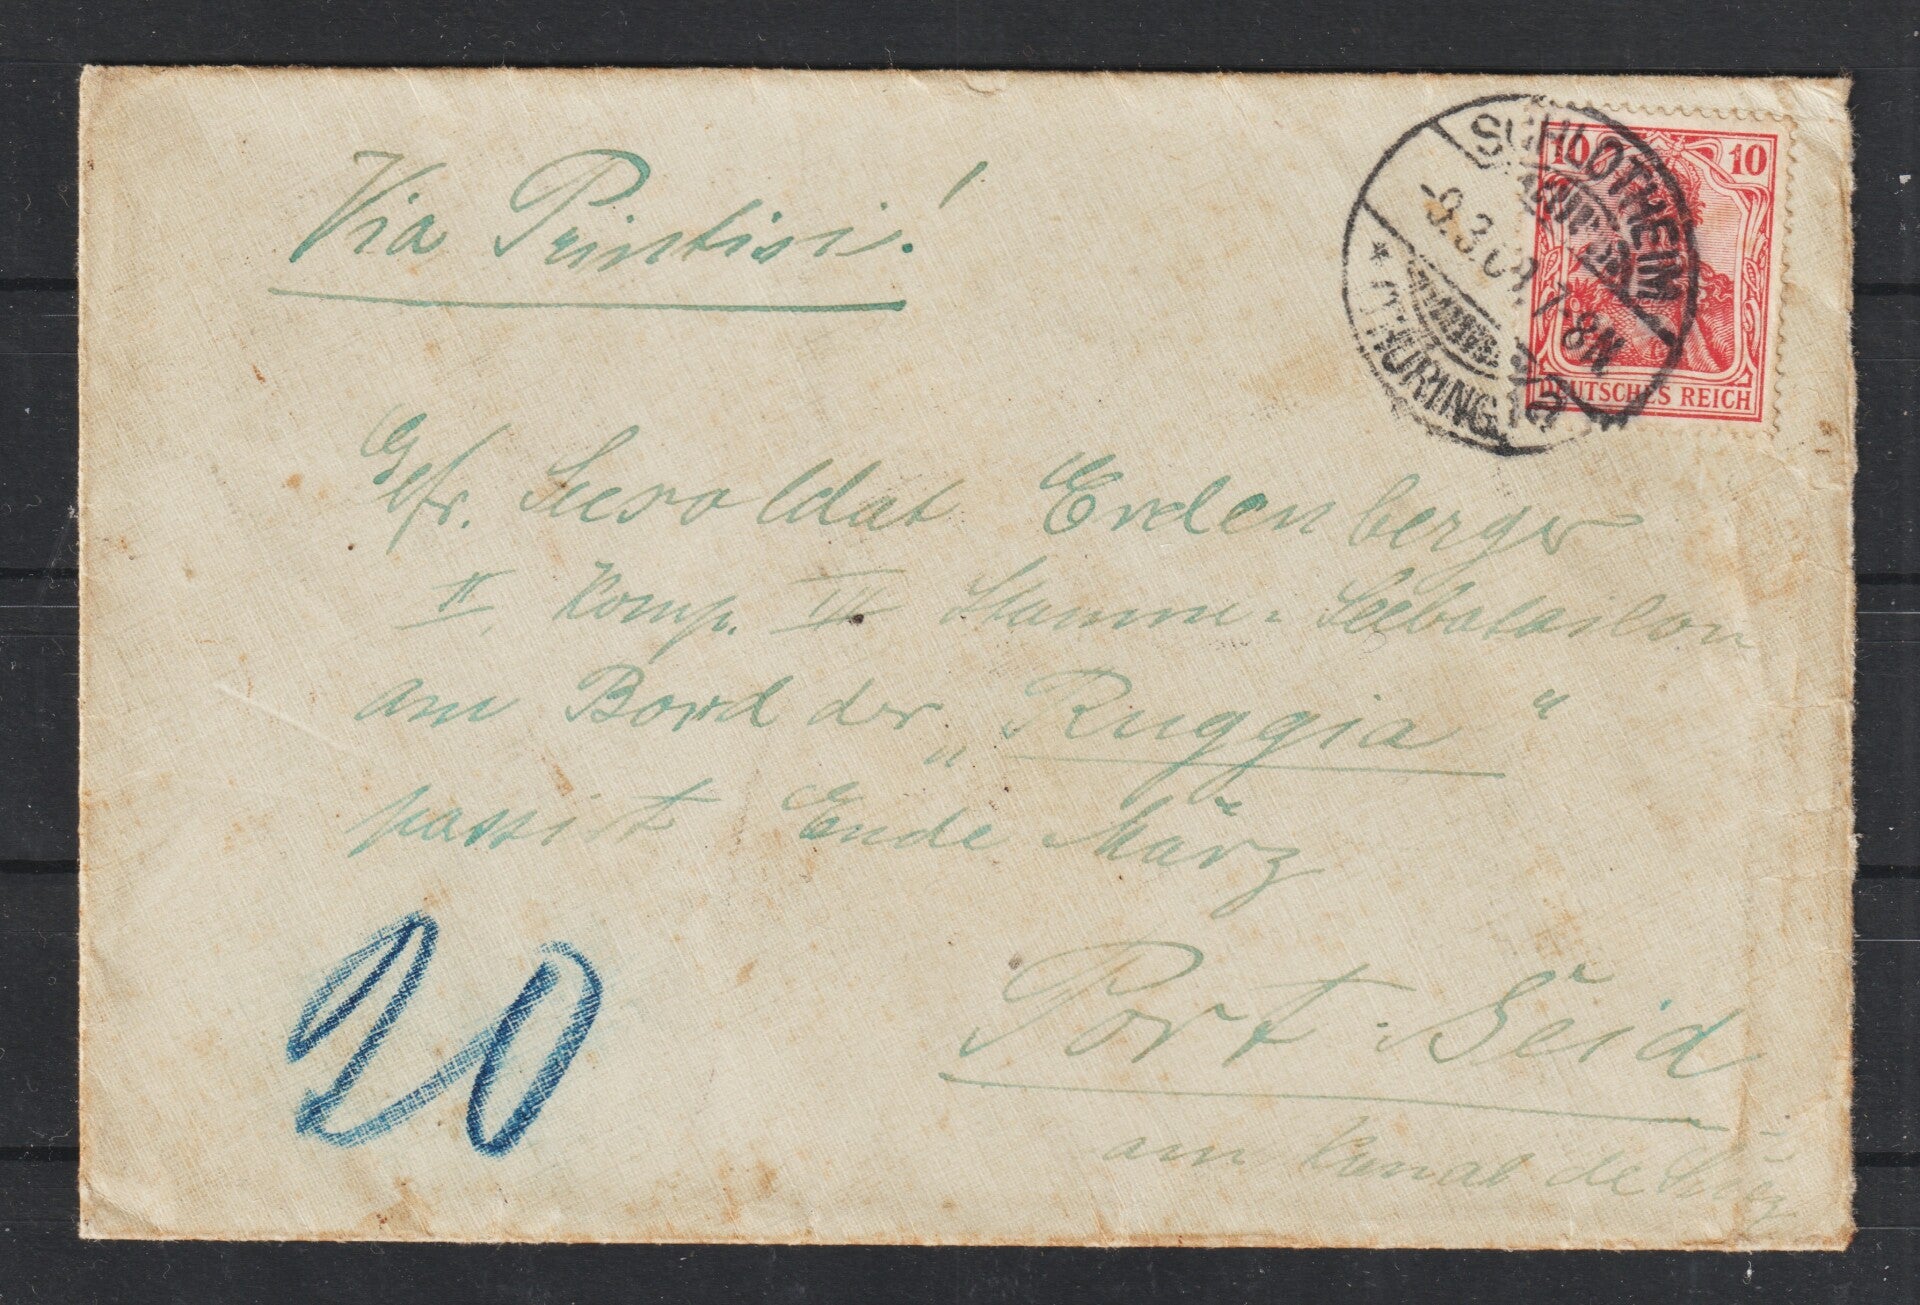 Via Printisi!
SCHLOTHEIM
-9.3.09. 7-8N.
* (THÜRINGEN)
10 10
DEUTSCHES REICH
Gefr. Seesoldat Erdenberger
II. Komp. III Stamm-Seebataillon
am Bord der „Ruggia“
passirt Ende März
Port-Seid
am Kanal de Suez
20